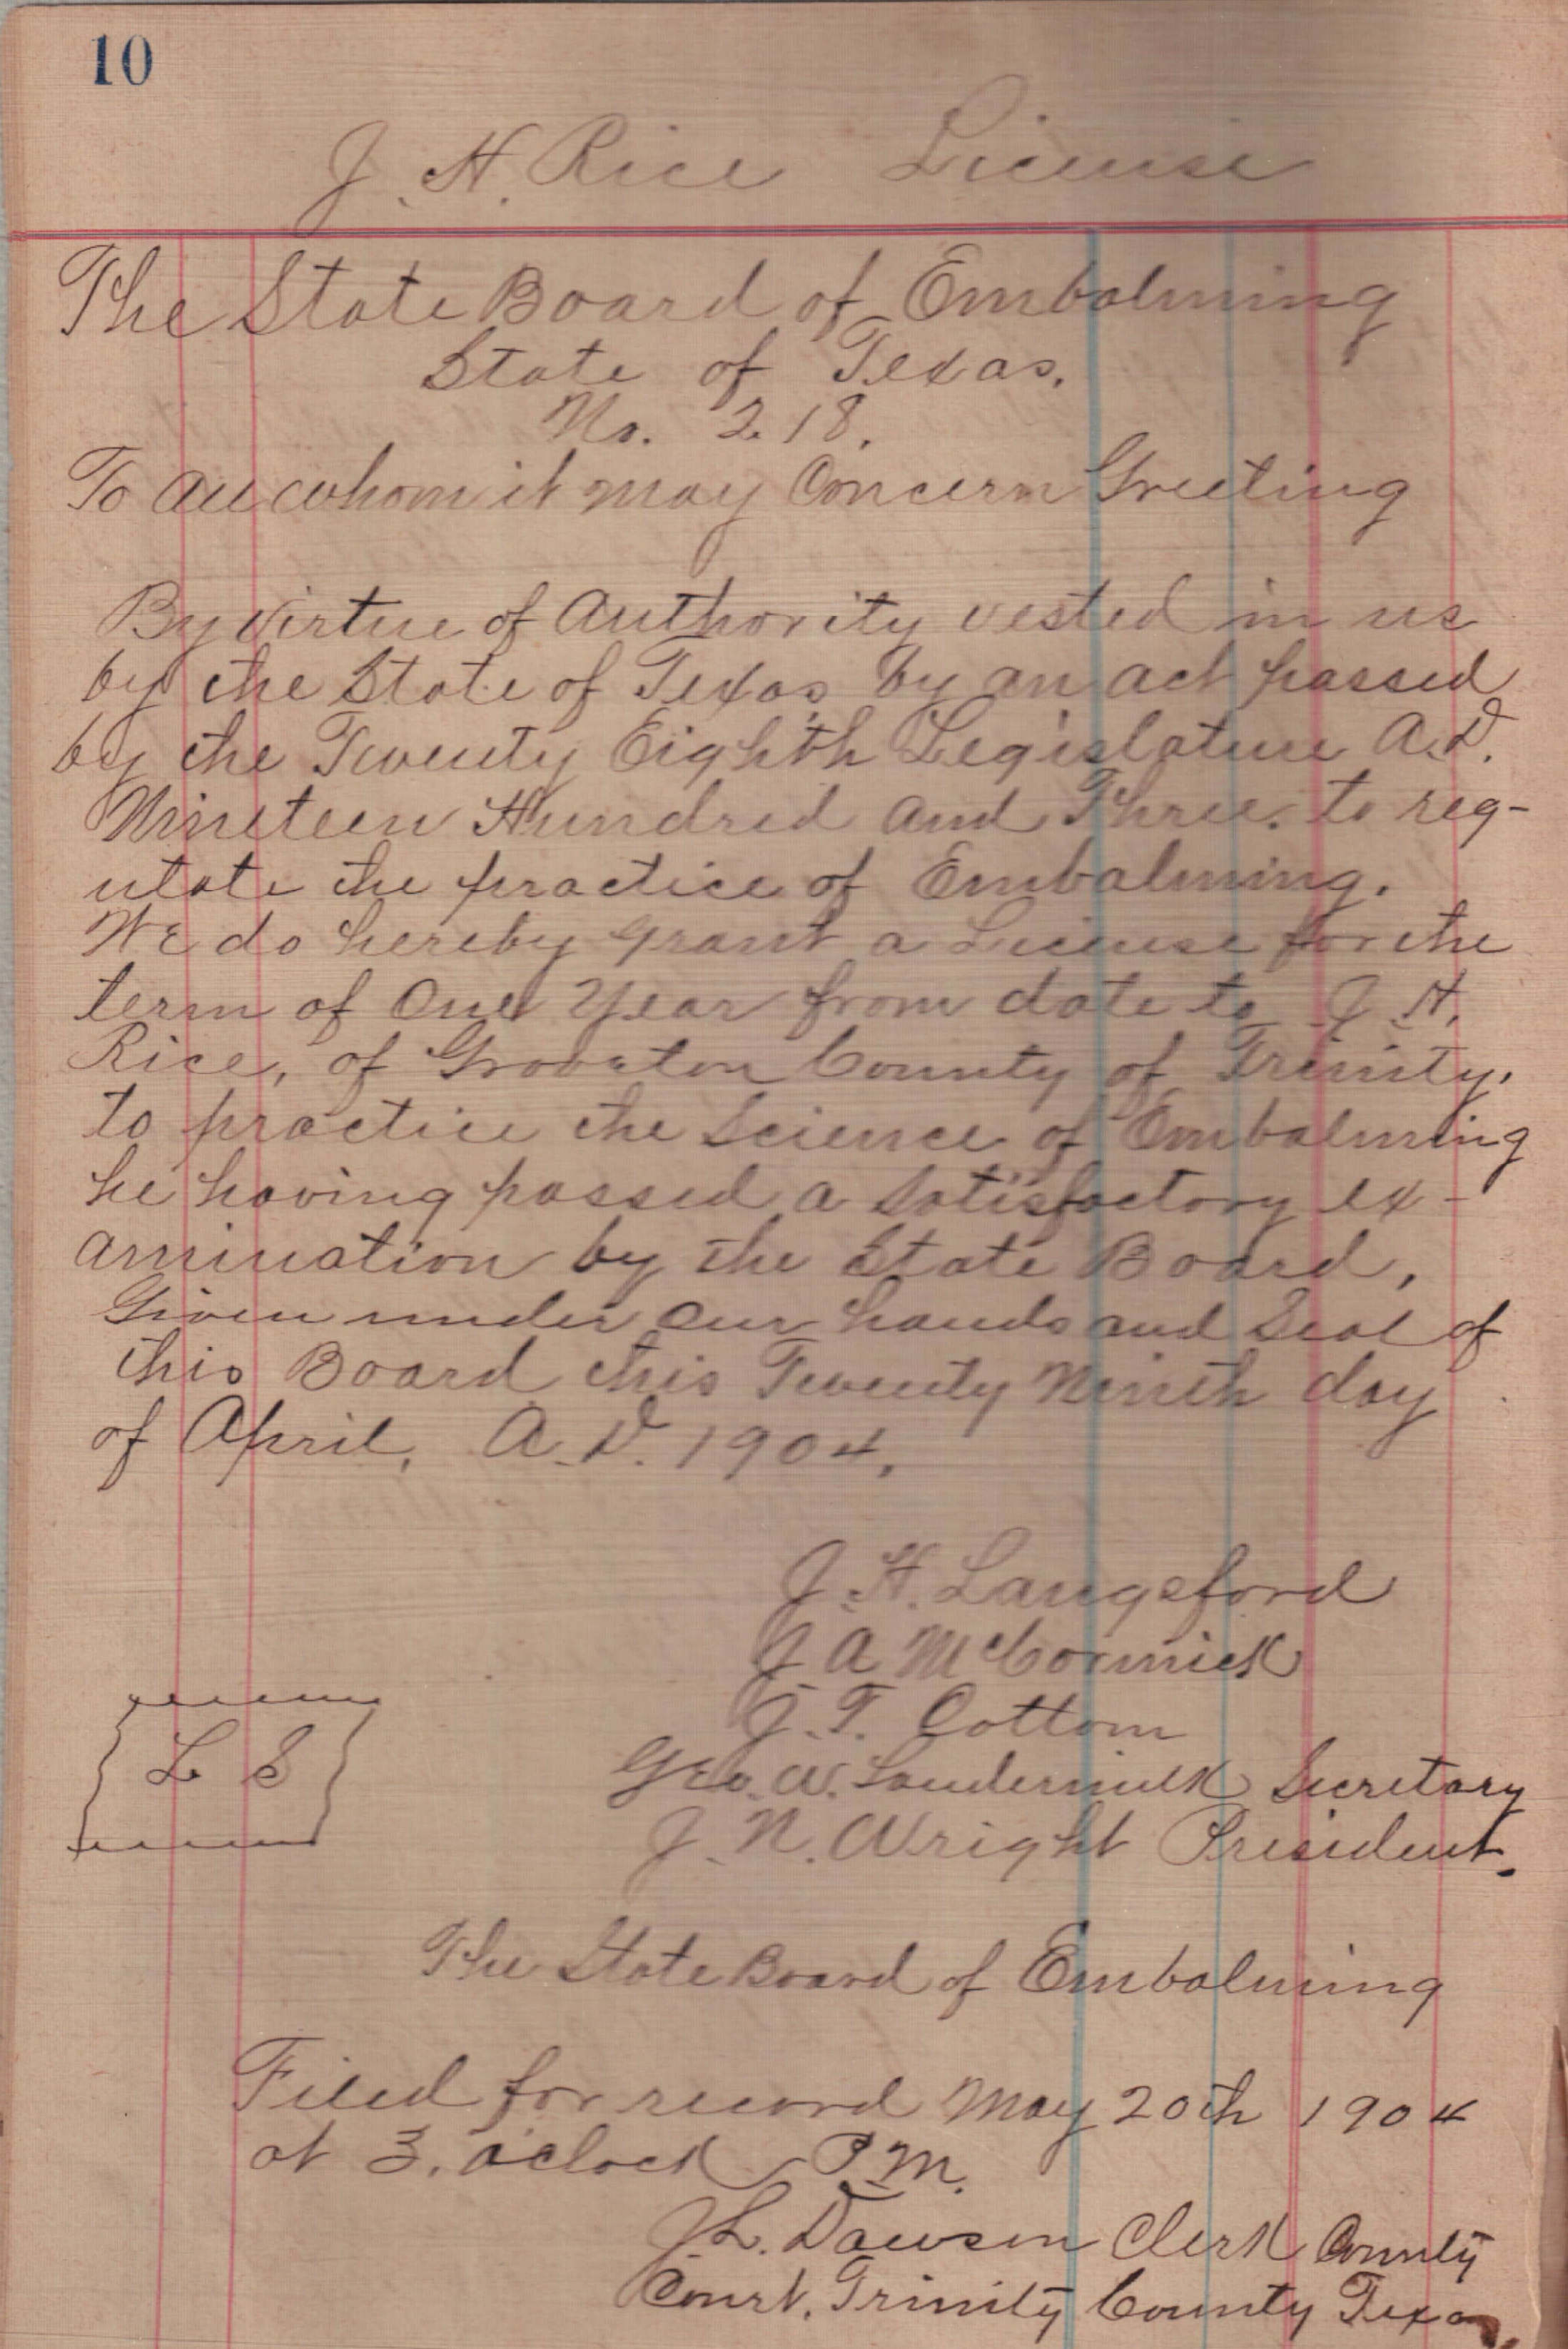 10
J. H. Rice License
The State Board of Embalming
State of Texas.
No. 218.
To all whom it may Concern Greeting
By virtue of Authority vested in us
by the State of Texas by an act passed
by the Twenty Eighth Legislature A.D.
Nineteen Hundred and Three. to reg-
ulate the practice of Embalming.
We do hereby grant a License for the
term of One Year from date to J. H.
Rice, of Groveton County of Trinity.
to practice the Science of Embalming
he having passed a Satisfactory ex-
amination by the State Board,
Given under Our hands and Seal of
this Board this Twenty Ninth day
of April, A.D. 1904.
J. H. Langsford
J A McCormick
J. T. Cottom
L S
Geo. W. Loudermilk Secretary
J. N. Wright President.
The State Board of Embalming
Filed for record May 20th 1904
at 3. oclock P.M.
J L. Dawson Clerk County
Court, Trinity County Texas